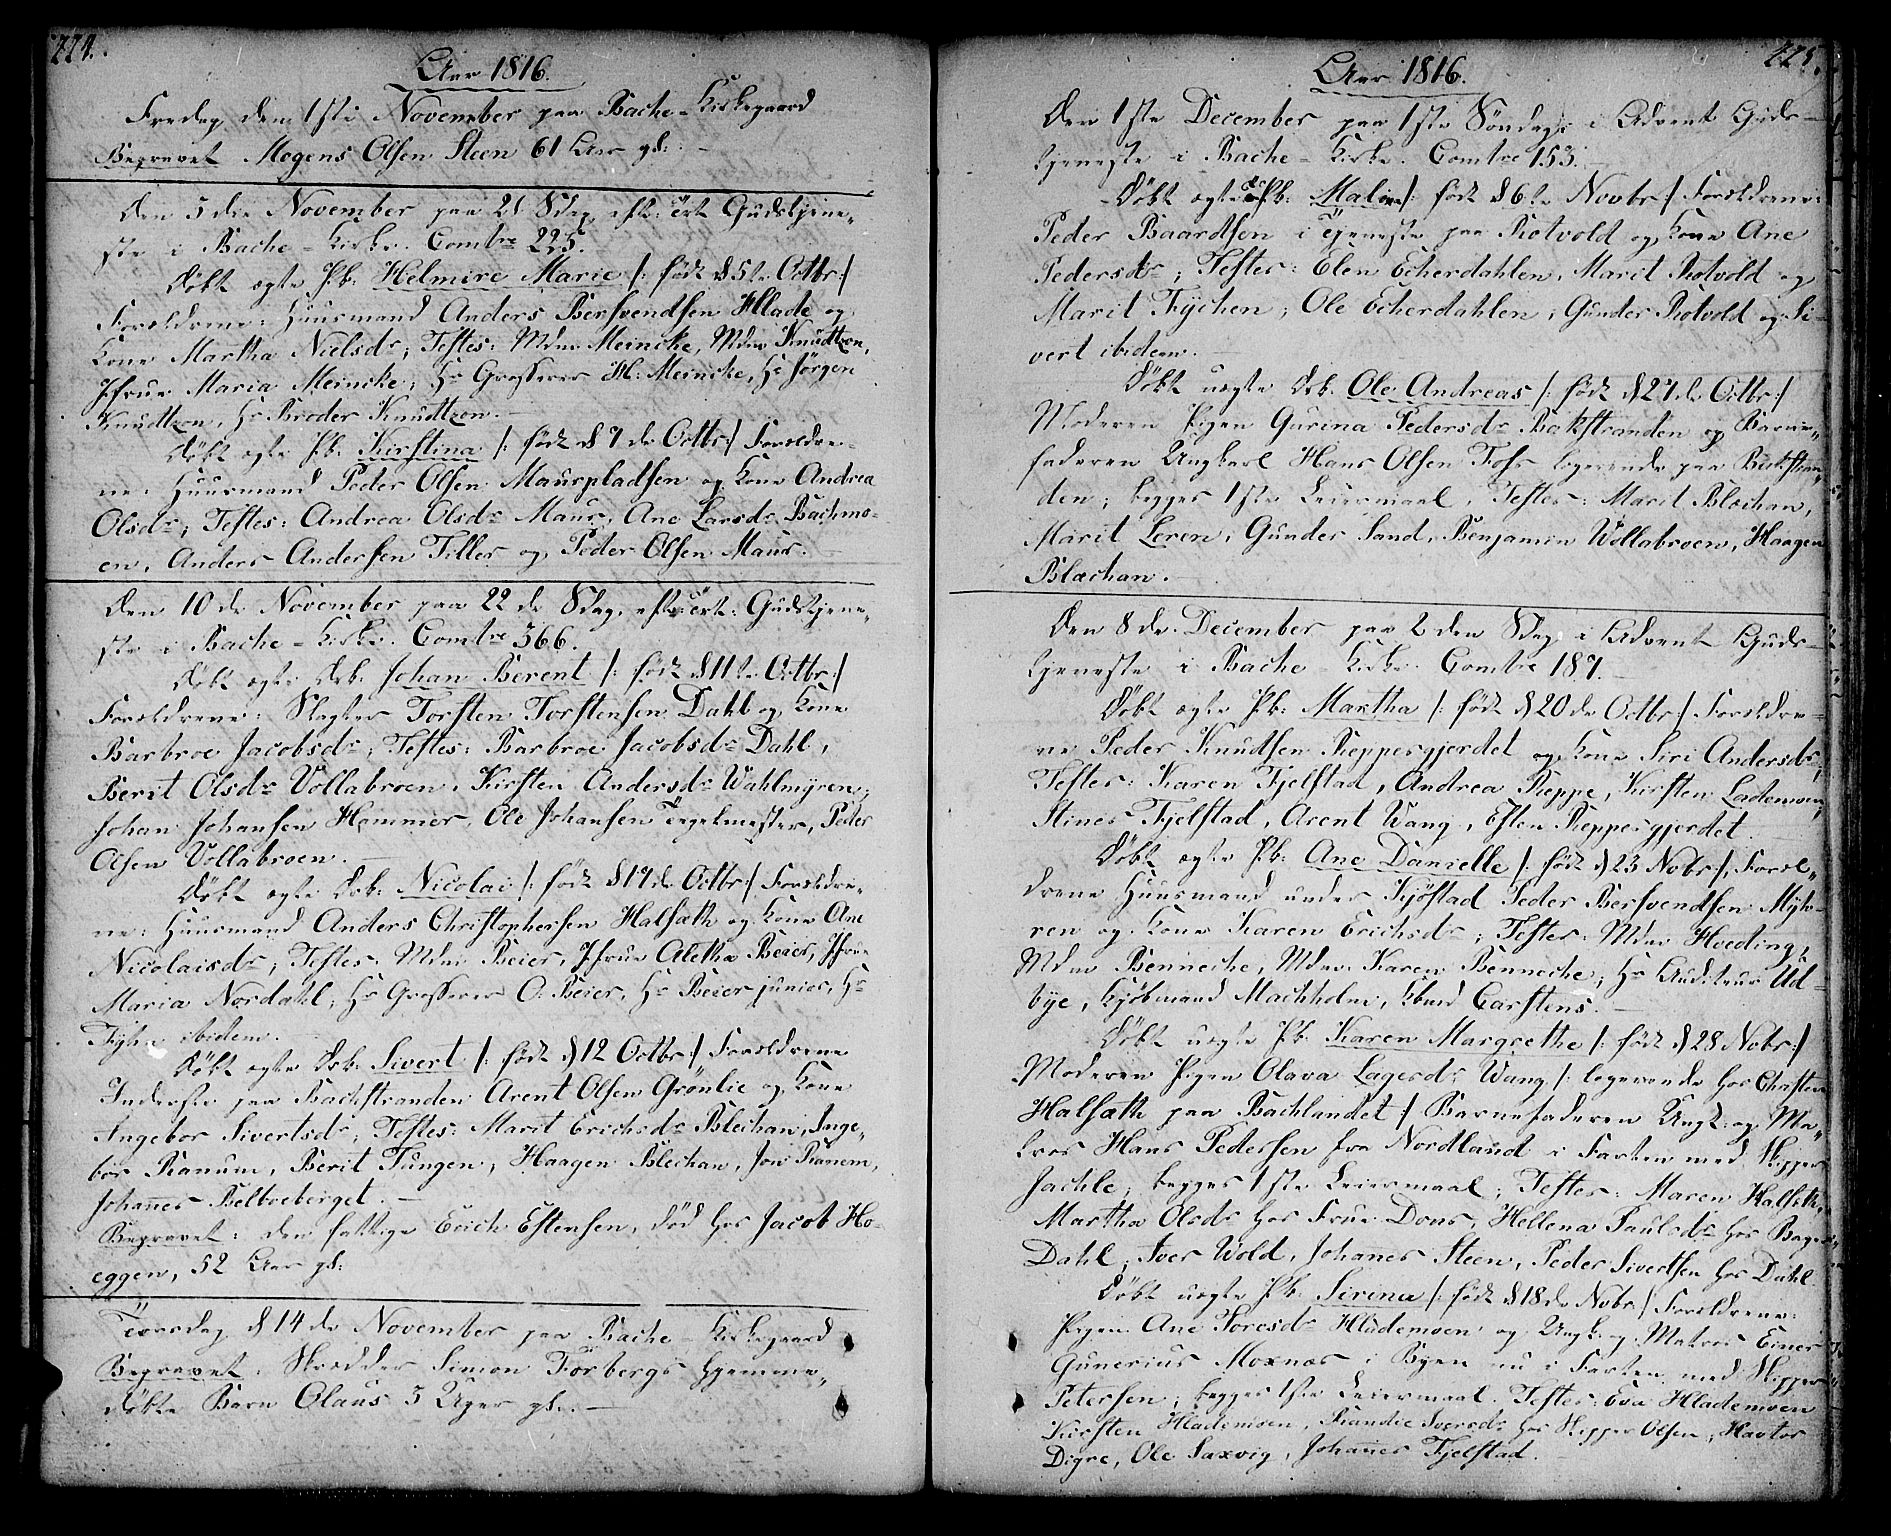 224.
Aar 1816.
Fredag den 1ste November paa Bache-Kirkegaard
Begravet Mogens Olsen Steen 61 Aar gl: –
Den 3die November paa 21 Sdag efter ært Gudstjene-
ste i Bache-Kirke. Comtre 225.
Døbt ægte Pb: Helmire Marie /: født d 5te Octbr:/
Forældrene: Huusmand Anders Bersvendsen Hlade og
Kone Martha Nielsdr; Testes: Mdm Meincke, Mdm Knudtzon,
Jfrue Maria Meincke, Hr Grosserer H: Meincke, Hr Jörgen
Knudtzon, Hr Broder Knudtzon. –
Døbt ægte Pb: Kirstina /: født d 7de Octbr:/ Forældre-
ne: Huusmand Peder Olsen Maurpladsen og Kone Andrea
Olsdr; Testes: Andrea Olsdr Maur, Ane Larsdr Bachmo-
en, Anders Andersen Tiller og Peder Olsen Maur. –
Den 10de November paa 22de Sdag efter ært: Gudstjene-
ste i Bache-Kirke. Comtre 366.
Døbt ægte Drb: Johan Berent /: født d 11te Octbr:/
Forældrene: Slagter Torsten Torstensen Dahl og Kone
Barbroe Jacobsdr; Testes: Barbroe Jacobsdr Dahl,
Berit Olsdr Vollabroen, Kirsten Andersdr Wahlmyren;
Johan Johansen Hammer, Ole Johansen Teigelmester, Peder
Olsen Vollabroen. –
Døbt ægte Drb: Nicolai /: født d 17de Octbr:/ Forældre-
ne: Huusmand Anders Christophersen Halsæth og Kone Ane
Nicolaisdr; Testes: Mdm Beier, Jfrue Aletha Beier, Jfrue
Maria Nordahl, Hr Grosserer O: Beier, Hr Beier junior, Hr
ibidem. –
Døbt ægte Drb: Sivert /: født d 12 Octbr:/ Forældrene
Inderste paa Bachstranden Arent Olsen Grönlie og Kone
Angebor Sivertsdr; Testes: Marit Erichsdr Blechan, Inge-
bor Ranum, Berit Tungen, Haagen Blechan, Jon Ranem,
Johannes Belboeberget. –
Begravet: den fattige Erich Estensen, død hos Jacob Ho-
eggen, 52 Aar gl:
Torsdag d 14de November paa Bache-Kirkegaard
Begravet: Skrædder Simon Forbergs hjemme-
døbte Barn Olaus 3 Uger gl: –
225.
Aar 1816.
Den 1ste December paa 1ste Söndag i Advent Guds-
tjeneste i Bache-Kirke. Comtre 153. –
Døbt ægte Pb: Malin /: født d 6te Novbr:/ Forældrene:
Peder Baardsen i Tjeneste paa Rotvold og Kone Ane
Pedersdr; Testes: Elen Echerdahlen, Marit Rotvold og
Marit Tychen; Ole Echerdahlen, Gunder Rotvold og Si-
vert ibidem. –
Døbt uægte Drb. Ole Andreas /: født d 27de Octbr:/
Moderen Pigen Gurina Pedersdr Bakstranden og Barne-
faderen Ungkarl Hans Olsen Foss logerende paa Bakstran-
den; begges 1ste Leiermaal. Testes: Marit Blæchan,
Marit Leren, Gunder Sand, Benjamin Wollabroen, Haagen
Blæchan. –
Den 8de December paa 2den Sdag i Advent Guds-
tjeneste i Bache-Kirke. Comtre 187. –
Døbt ægte Pb: Martha /: født d 20de Octbr:/ Forældre-
ne Peder Knudsen Reppesgjerdet og Kone Siri Andersdr;
Testes: Karen Fjelstad, Andrea Reppe, Kirsten Lademoen,
Stines Fjelstad, Arent Wang, Esten Reppesgjerdet.
Døbt ægte Pb: Ane Danielle /: født d 23 Nobr:/, Foræl-
drene Huusmand under Kjöstad Peder Bersvendsen Myh-
ren og Kone Karen Erichsdr; Testes: Mdm Hveding,
Mdm Benneche, Mdm: Karen Benneche; Hr Auditeur Ud-
bye, Kjöbmand Machholm, Kbmd Carstens.
Døbt uægte Pb: Karen Margrethe /: født d 28 Nobr:/
Moderen Pigen Olava Lagesdr Wang /: logerende hos Chasten
Halsæth paa Bachlandet :/ Barnefaderen Ungk. og Ma-
tros Hans Pedersen fra Nordland i Farten med Skipper
Jachle; begges 1ste Leiermaal; Testes: Maren Halseth,
Martha Olsdr hos Frue Dons, Hellena Paulsdr hos Bager
Dahl; Iver Wold, Johanes Steen, Peder Sivertsen hos Dahl
Døbt uægte Pb: Sirina /: født d 18de Nobr:/ Forældrene:
Pigen Ane Toresdr Hlademoen og Ungk. og Matros Einer
Gunerius Moxnæs i Byen nu i Farten med Skipper
Petersen; begges 1ste Leiermaal. Testes: Eva Hlademoen
Kirsten Hlademoen, Randie Iversdr hos Skipper Olsen; Havtor
Digre, Ole Saxvig, Johannes Fjelstad. –